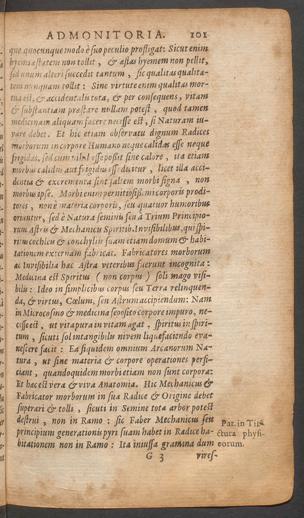 ADMONITORIA. 101
que quocunque modo è suo peculio profligat: Sicut enim
hyems æstatem non tollit, & æstas hyemem non pellit,
sed unum alteri succedit tantum, sic qualitas qualita-
tem nunquam tollit: Sine virtute enim qualitas mor-
tua est, & accidentalis tota, & per consequens, vitam
& substantiam prostare nullam potest, quod tamen
medicinam aliquam facere necesse est, si Naturam iu-
vare debet. Et hic etiam observatu dignum Radices
morborum in corpore Humano neque calidas esse neque
frigidas, sed cum nihil esse possit sine calore, ita etiam
morbus calidus aut frigidus esse dicitur, licet illa acci-
dentia & excrementa sint saltem morbi signa, non
morbus ipse. Morbi enim perniciosiss. non corporis prodi-
tores, non è materia corporis, seu quatuor humoribus
oriuntur, sed è Natura seminis seu à Trium Principio-
rum astris & Mechanicis Spiritib. Invisibilibus, qui spi-
ritus cochleæ & conchylii suam etiam domum & habi-
tationem externam fabricat. Fabricatores morborum
ac Invisibilia hæc Astra veteribus fuerunt incognita:
Medicina est Spiritus (non corpus) soli mago visi-
bilis: Ideo in simplicibus corpus seu Terra relinquen-
da, & virtus, Cœlum, seu Astrum accipiendum: Nam
in Microcosmo & medicina seposito corpore impuro, ne-
cisse est, ut vita pura in vitam agat, spiritus in spiri-
tum, sicuti sol intangibilis nivem liquefaciendo eva-
nescere facit: Ea siquidem omnium Arcanorum Na-
tura, ut sine materia & corpore operationes perfi-
ciant, quandoquidem morbi etiam non sunt corpora:
Et hæc est vera & viva Anatomia. Hic Mechanicus &
Fabricator morborum in sua Radice & Origine debet
superari & tolli, sicuti in Semine tota arbor potest
destrui, non in Ramo: sic Faber Mechanicus seu
principium generationis pyri suam habet in Radice ha-
bitationem non in Ramo: Ita iniussa gramina dum
Par. in Tin
ctura physi-
corum.
G 3 vires-